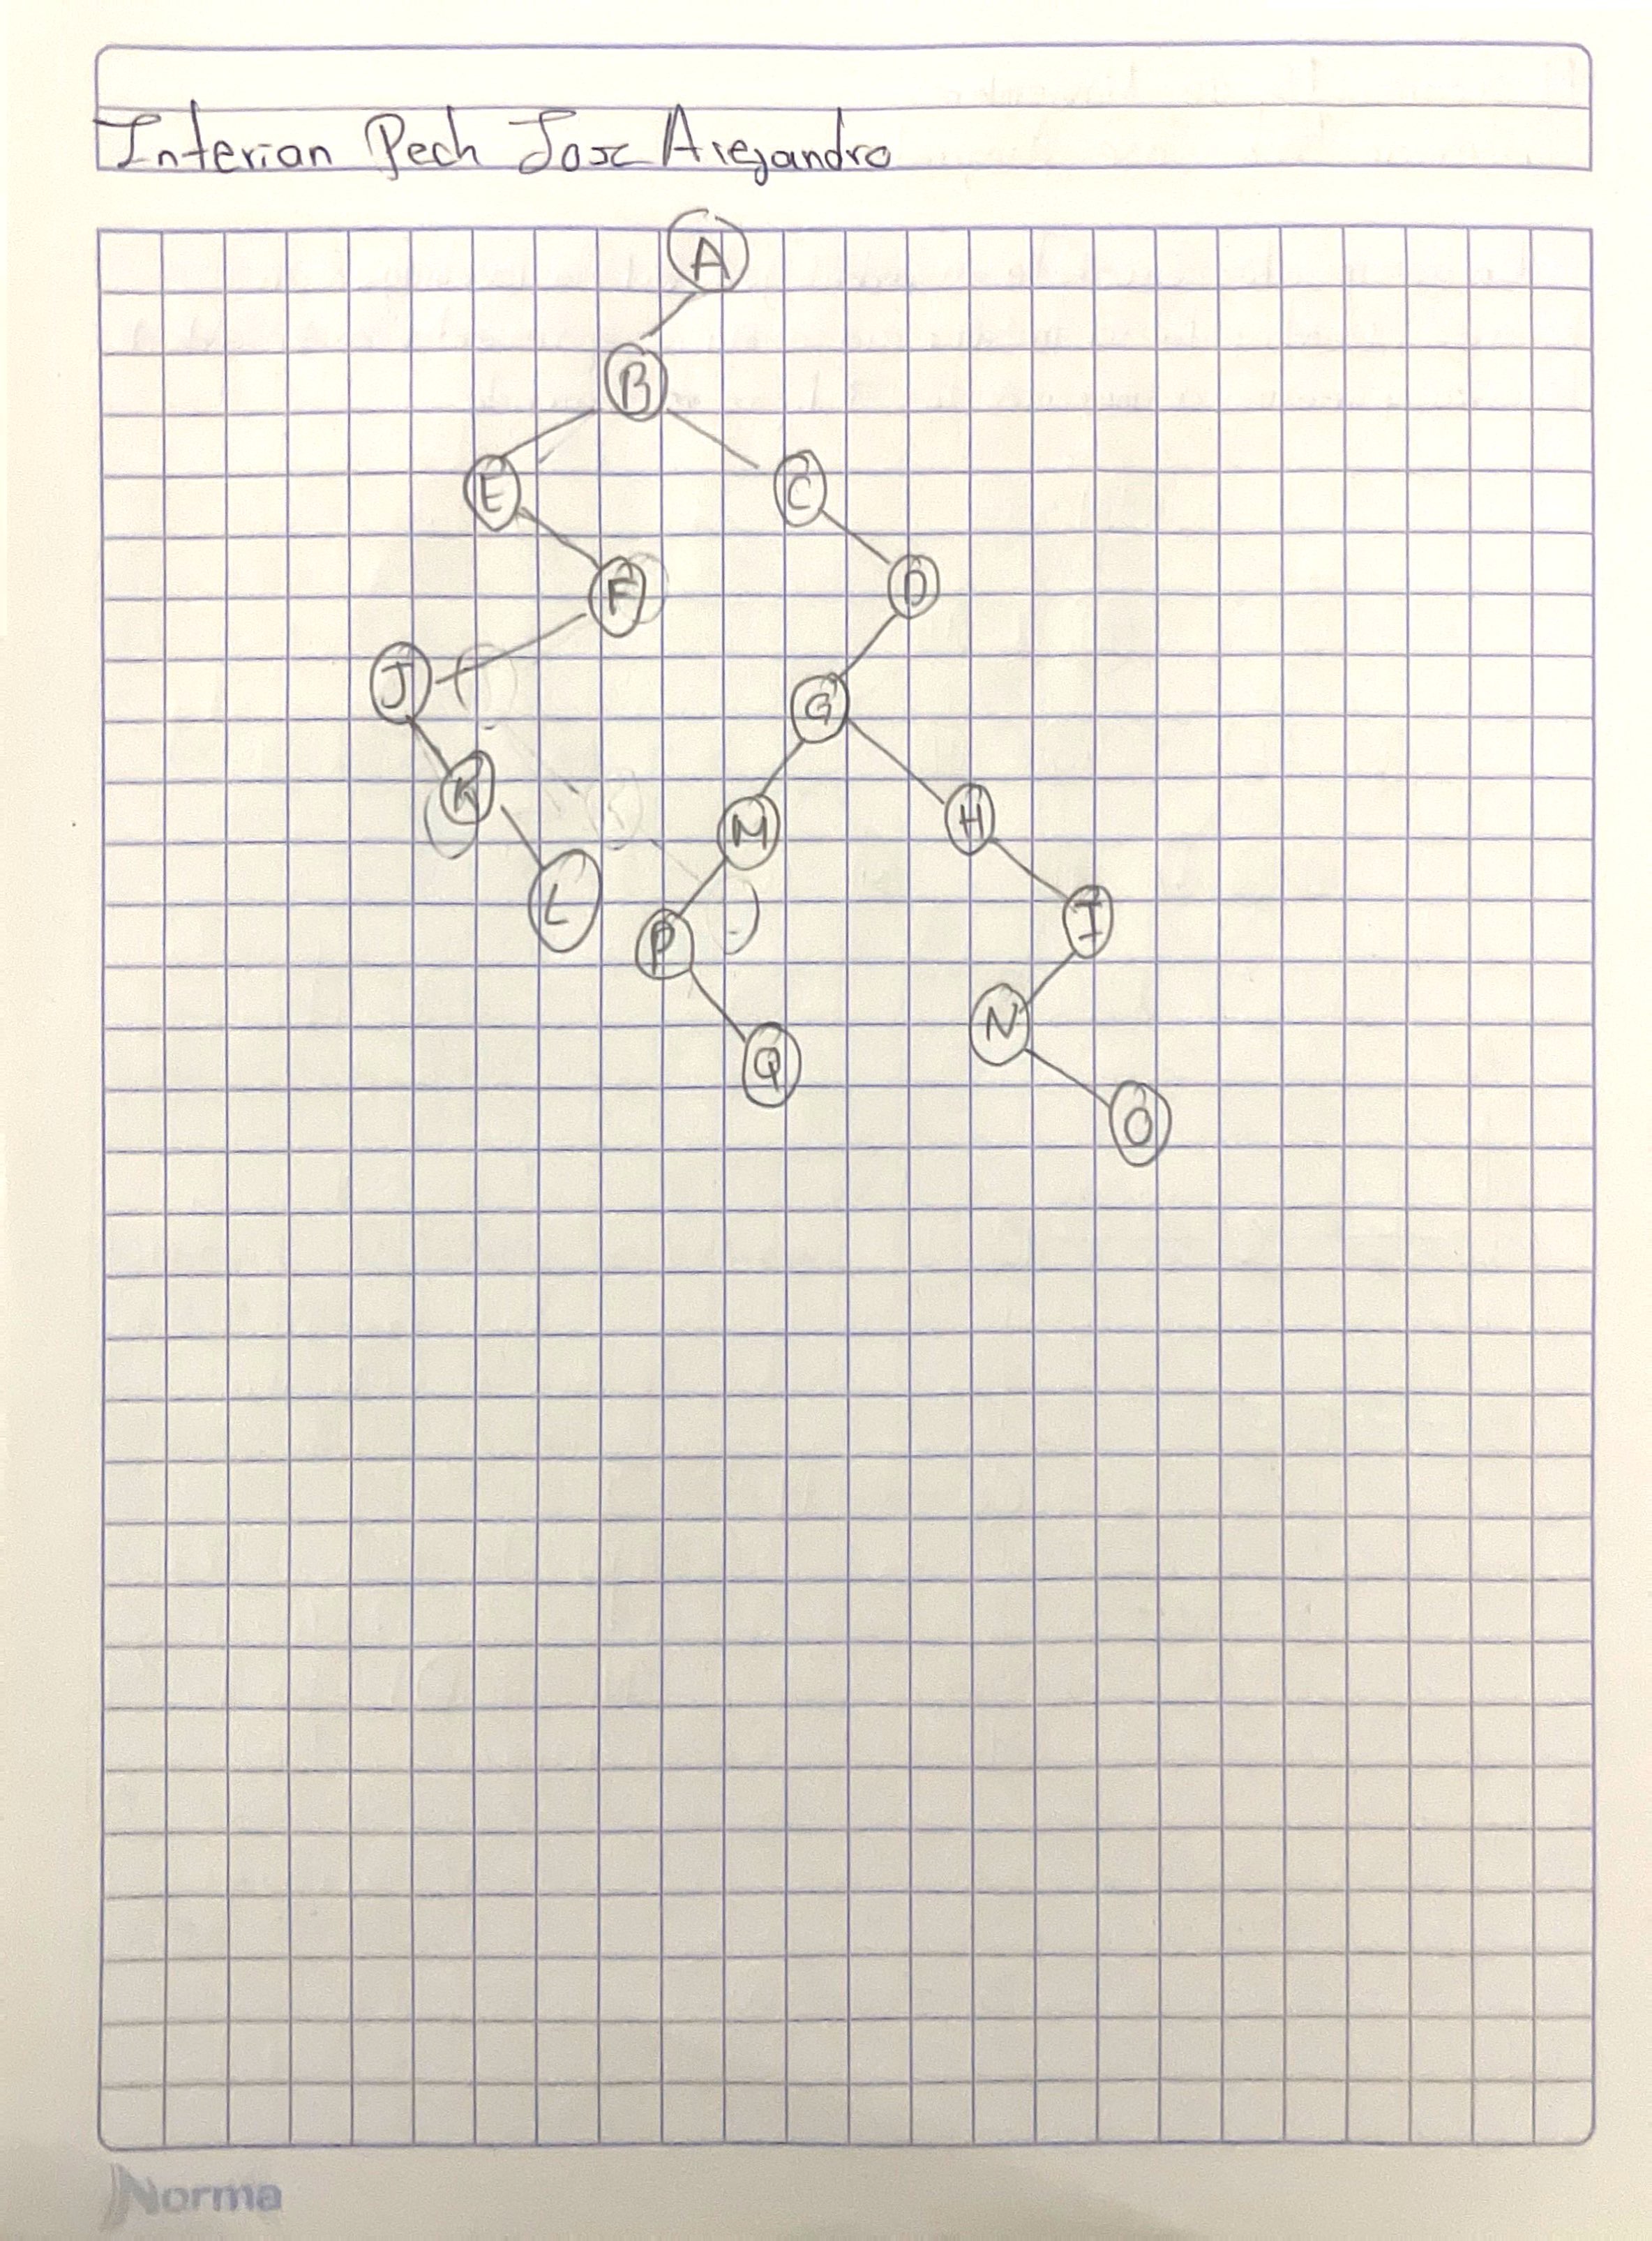 Interian Pech Jose Alejandro
A
B
E C
F D
J G
K M H
L P I
N
Q O
Norma